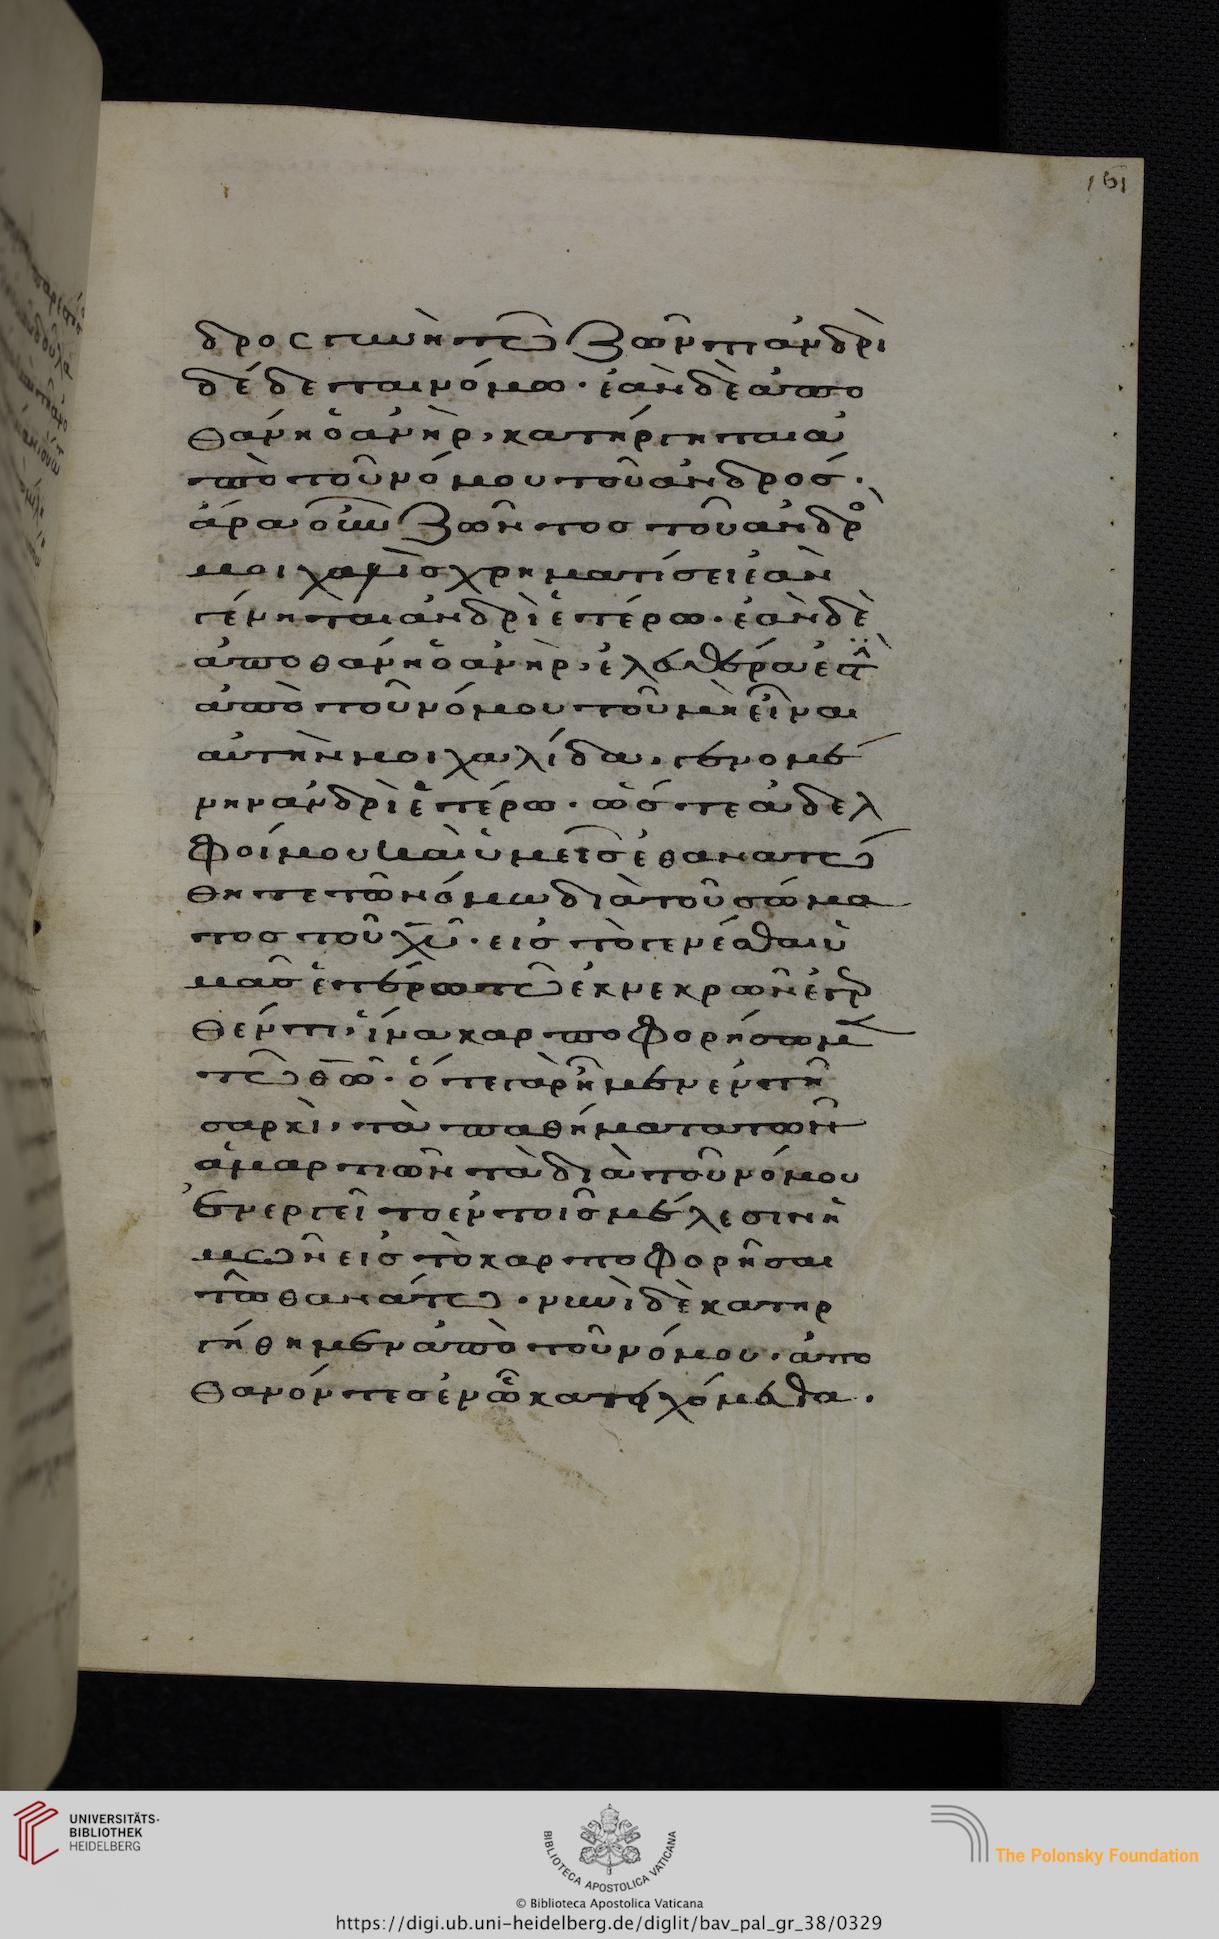 161
δρος γυνὴ τῶ ζῶντι ἀνδρὶ
δέδεται νόμω· ἐὰν δὲ ἀπο
θάνη ὁ ἀνὴρ, κατήργηται ἀ
πὸ τοῦ νόμου τοῦ ἀνδρός·
ἄρα οὖν ζῶντος τοῦ ἀνδρὸ
μοιχαλὶς χρηματίσει ἐὰν
γένηται ἀνδρὶ ἑτέρω· ἐὰν δὲ
ἀποθάνη ὁ ἀνὴρ, ἐλευθέρα ἐστὶ
ἀπὸ τοῦ νόμου τοῦ μὴ εἶναι
αὐτὴν μοιχαλίδα, γενομέ
νην ἀνδρὶ ἑτέρω· ὥστε ἀδελ
φοί μου καὶ ὑμεῖς ἐθανατώ
θητε τῶ νόμω διὰ τοῦ σώμα
τος τοῦ χυ· εἰς τὸ γενέσθαι ὑ
μᾶς ἑτέρω τῶ ἐκ νεκρῶν ἐγερ
θέντι, ἵνα καρποφορήσωμεν
τῶ θῶ· ὅτε γὰρ ἦμεν ἐν τῆ
σαρκὶ, τὰ παθήματα τῶν
ἁμαρτιῶν τὰ διὰ τοῦ νόμου
ἐνεργεῖτο ἐν τοῖς μέλεσιν ἡ
μῶν εἰς τὸ καρποφορῆσαι
τῶ θανάτω· νυνὶ δὲ κατηρ
γήθημεν ἀπὸ τοῦ νόμου· ἀπο
θανόντες ἐν ὧ κατειχόμεθα·
UNIVERSITÄTS-
BIBLIOTHEK
HEIDELBERG
BIBLIOTECA APOSTOLICA VATICANA
The Polonsky Foundation
© Biblioteca Apostolica Vaticana
https://digi.ub.uni-heidelberg.de/diglit/bav_pal_gr_38/0329